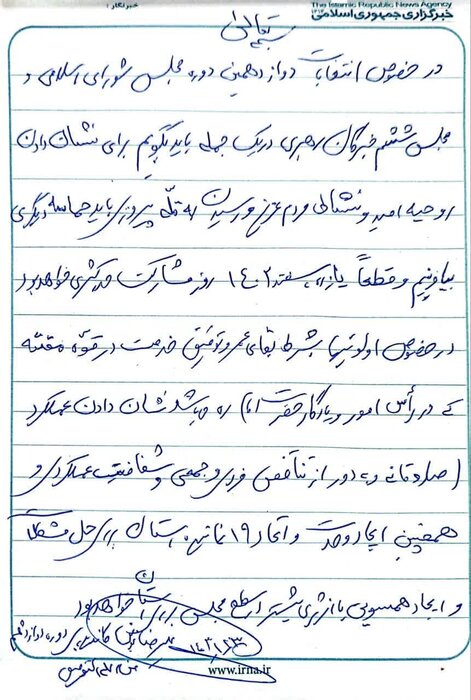 خبرنگار:
The Islamic Republic News Agency
خبرگزاری جمهوری اسلامی
بسمه تعالی
در خصوص انتخابات دوازدهمین دوره مجلس شورای اسلامی و
مجلس ششم خبرگان رهبری در یک جمله باید بگویم برای نشان دادن
روحیه امید و نشاط مردم عزیز و رسیدن به قله پیروزی باید حماسه دیگری
بیافرینیم و قطعاً یازده اسفند ۱۴۰۲ روز مشارکت حداکثری خواهد بود
در خصوص اولویتها بشرط بقای عمر و توفیق خدمت در قوه مقننه
که در رأس امور و یادگار حضرت امام ره میباشد نشان دادن عملکرد
صادقانه و به دور از تناقض فردی و جمعی و شفافیت عملکردی و
همچنین ایجاد وحدت و اتحاد ۱۹ نماینده استان برای حل مشکلات
و ایجاد همسویی با انرژی بیشتر در سطح مجلس برای استان خواهد بود
علیرضا کاندیدای دوره دوازدهم
من الله التوفیق
www.irna.ir